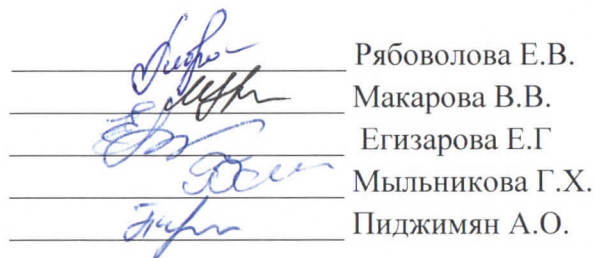 Рябоволова Е.В.
Макарова В.В.
Егизарова Е.Г
Мыльникова Г.Х.
Пиджимян А.О.